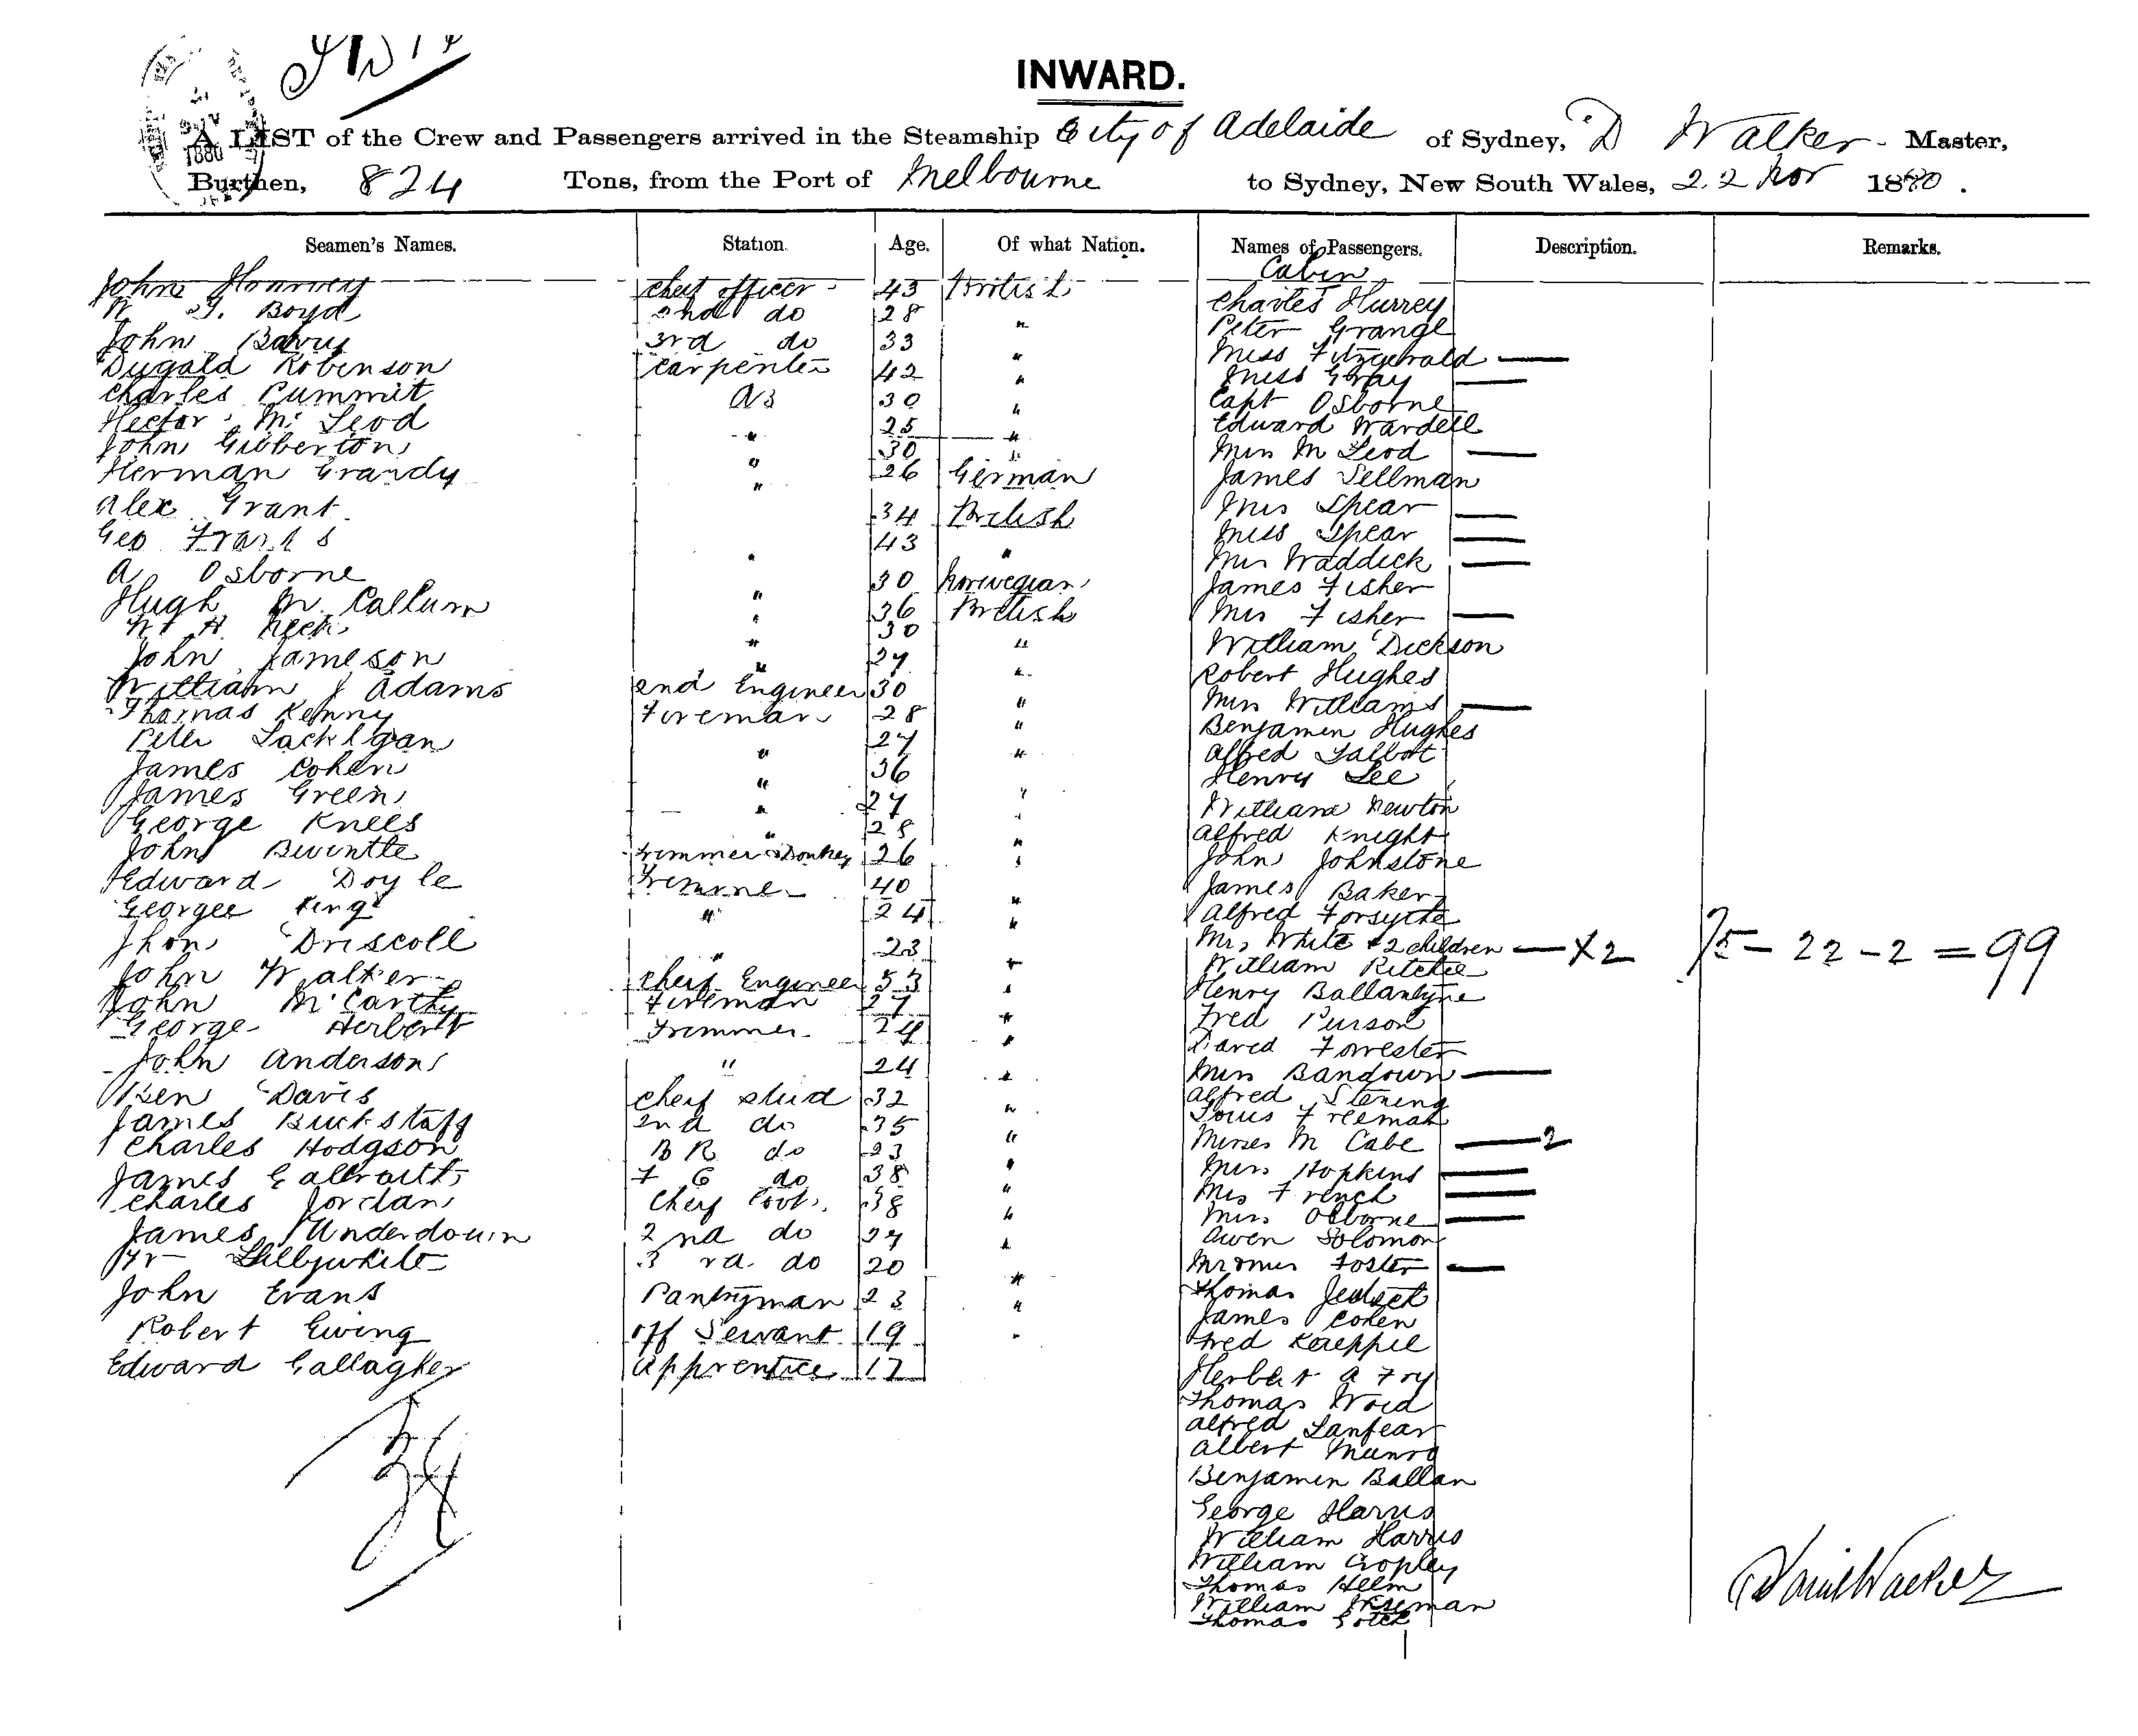 INWARD.
A LIST of the Crew and Passengers arrived in the Steamship City of Adelaide of Sydney, D Walker Master,
Burthen, 824 Tons, from the Port of Melbourne to Sydney, New South Wales, 22 Nov 1880.
Seamen's Names. Station. Age. Of what Nation. Names of Passengers. Description. Remarks.
Cabin
John cheif officer 43 British Charles Hurrey
W G. Boyd 2nd do 28 " Peter Grange
John Barry 3rd do 33 " Miss Fitzgerald —
Dugald Robinson Carpenter 42 " Miss Gray —
Charles Pummit AB 30 " Capt Osborne
Hector Mc Leod " 25 " Edward Wardell
John Gilberton " 30 " Mrs Mc Leod —
Herman Grandy " 26 German James Sellman
Alex Grant 34 British Mrs Spear —
Geo 43 " Miss Spear —
A Osborne 30 Norwegian Mrs Waddick —
Hugh Mc Callum " 36 British James Fisher
W H 30 " Mrs Fisher —
John Jameson " 27 " William Dickson
William J Adams 2nd Engineer 30 " Robert Hughes
Thomas Kenny Fireman 28 " Mrs Williams —
Peter " 27 " Benjamin Hughes
James Cohen " 36 " Alfred Talbot
James Green " 27 " Henry Lee
George Knees " 28 " William Newton
John Bwintle Trimmer & Donkey 26 " Alfred Knight
Edward Doyle Trimmer 40 " John Johnstone
Georgee King " 24 " James Baker
Jhon Driscoll " 23 " Alfred Forsythe
John Walker Cheif Engineer 53 " Mrs White & 2 children — x2 75 - 22 - 2 = 99
John McCarthy Fireman 27 " William Ritchie
George Herbert Trimmer 24 " Henry Ballantyne
John Anderson " 24 " Fred Purson
Ben Davis Cheif stud 32 " David Forrester
James Buckstaff 2nd do 35 " Mrs Bandown —
Charles Hodgson B R do 23 " Alfred Stening
James Galbraith F C do 38 " Louis Freeman
Charles Jordan Cheif Cook 38 " Misses Mc Cabe — 2
James Underdown 2nd do 27 " Mrs Hopkins —
Wr Lillywhite 3rd do 20 " Mrs French —
John Evans Pantryman 23 " Mrs Osborne —
Robert Ewing Off Servant 19 " Owen Solomon
Edward Gallagher Apprentice 17 Mr & Mrs Foster —
Thomas
James Cohen
Fred Kaeppel
Herbert A Fry
Thomas Woid
Alfred Lanfear
Albert Munro
Benjamin Ballan
George Harris
William Harris
William Cropley
Thomas Helm
William Wiseman
Thomas